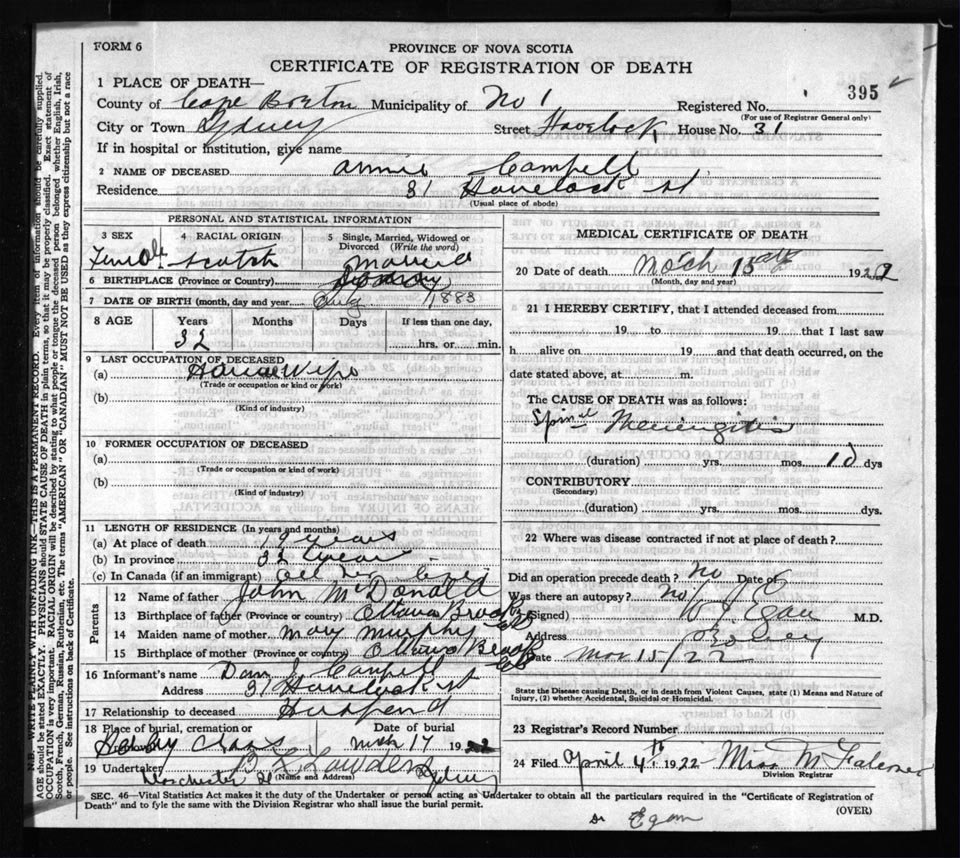 FORM 6
PROVINCE OF NOVA SCOTIA
CERTIFICATE OF REGISTRATION OF DEATH
395
1 PLACE OF DEATH—
County of Cape Breton Municipality of No 1 Registered No.
(For use of Registrar General only)
City or Town Sydney Street Havelock House No. 31
If in hospital or institution, give name
2 NAME OF DECEASED Annie Campbell
Residence 31 Havelock st.
(Usual place of abode)
PERSONAL AND STATISTICAL INFORMATION
3 SEX 4 RACIAL ORIGIN 5 Single, Married, Widowed or Divorced (Write the word)
Female Scotch Married
6 BIRTHPLACE (Province or Country)
7 DATE OF BIRTH (month, day and year) Aug 1883
8 AGE Years Months Days If less than one day,
32 hrs. or min.
9 LAST OCCUPATION OF DECEASED
(a) House Wife
(Trade or occupation or kind of work)
(b)
(Kind of industry)
10 FORMER OCCUPATION OF DECEASED
(a)
(Trade or occupation or kind of work)
(b)
(Kind of industry)
11 LENGTH OF RESIDENCE (In years and months)
(a) At place of death 19 years
(b) In province 32 years
(c) In Canada (if an immigrant) all her life
Parents
12 Name of father John McDonald
13 Birthplace of father (Province or country) Ottawa Brook CB
14 Maiden name of mother Mary Murphy
15 Birthplace of mother (Province or country) Ottawa Brook CB
16 Informant's name Dan J Campbell
Address 31 Havelock st
17 Relationship to deceased Husband
18 Place of burial, cremation or Date of burial
Holy Cross Mch 17 1922
19 Undertaker
(Name and Address)
Dorchester St Sydney
MEDICAL CERTIFICATE OF DEATH
20 Date of death March 15th 1922
(Month, day and year)
21 I HEREBY CERTIFY, that I attended deceased from
19 to 19 that I last saw
h alive on 19 and that death occurred, on the
date stated above, at m.
The CAUSE OF DEATH was as follows:
Spinal Meningitis
(duration) yrs. mos. 10 dys
CONTRIBUTORY
(Secondary)
(duration) yrs. mos. dys.
22 Where was disease contracted if not at place of death?
Did an operation precede death? no Date of
Was there an autopsy? no
(Signed) Egan M.D.
Address Sydney
Date Mar 15/22
State the Disease causing Death, or in death from Violent Causes, state (1) Means and Nature of
Injury, (2) whether Accidental, Suicidal or Homicidal.
23 Registrar's Record Number
24 Filed April 4th 1922 Miss M Falconer
Division Registrar
SEC. 46—Vital Statistics Act makes it the duty of the Undertaker or person acting as Undertaker to obtain all the particulars required in the "Certificate of Registration of
Death" and to fyle the same with the Division Registrar who shall issue the burial permit.
(OVER)
Dr Egan
N.B. WRITE PLAINLY WITH UNFADING INK—THIS IS A PERMANENT RECORD. Every item of information should be carefully supplied.
AGE should be stated EXACTLY. PHYSICIANS should STATE CAUSE OF DEATH in plain terms, so that it may be properly classified. Exact statement of
OCCUPATION is very important. RACIAL ORIGIN will be described by stating to what people or tongue the deceased person belonged whether English, Irish,
Scotch, French, German, Russian, Ruthenian, etc. The terms "AMERICAN" OR "CANADIAN" MUST NOT BE USED as they express citizenship but not a race
or people. See instructions on back of Certificate.